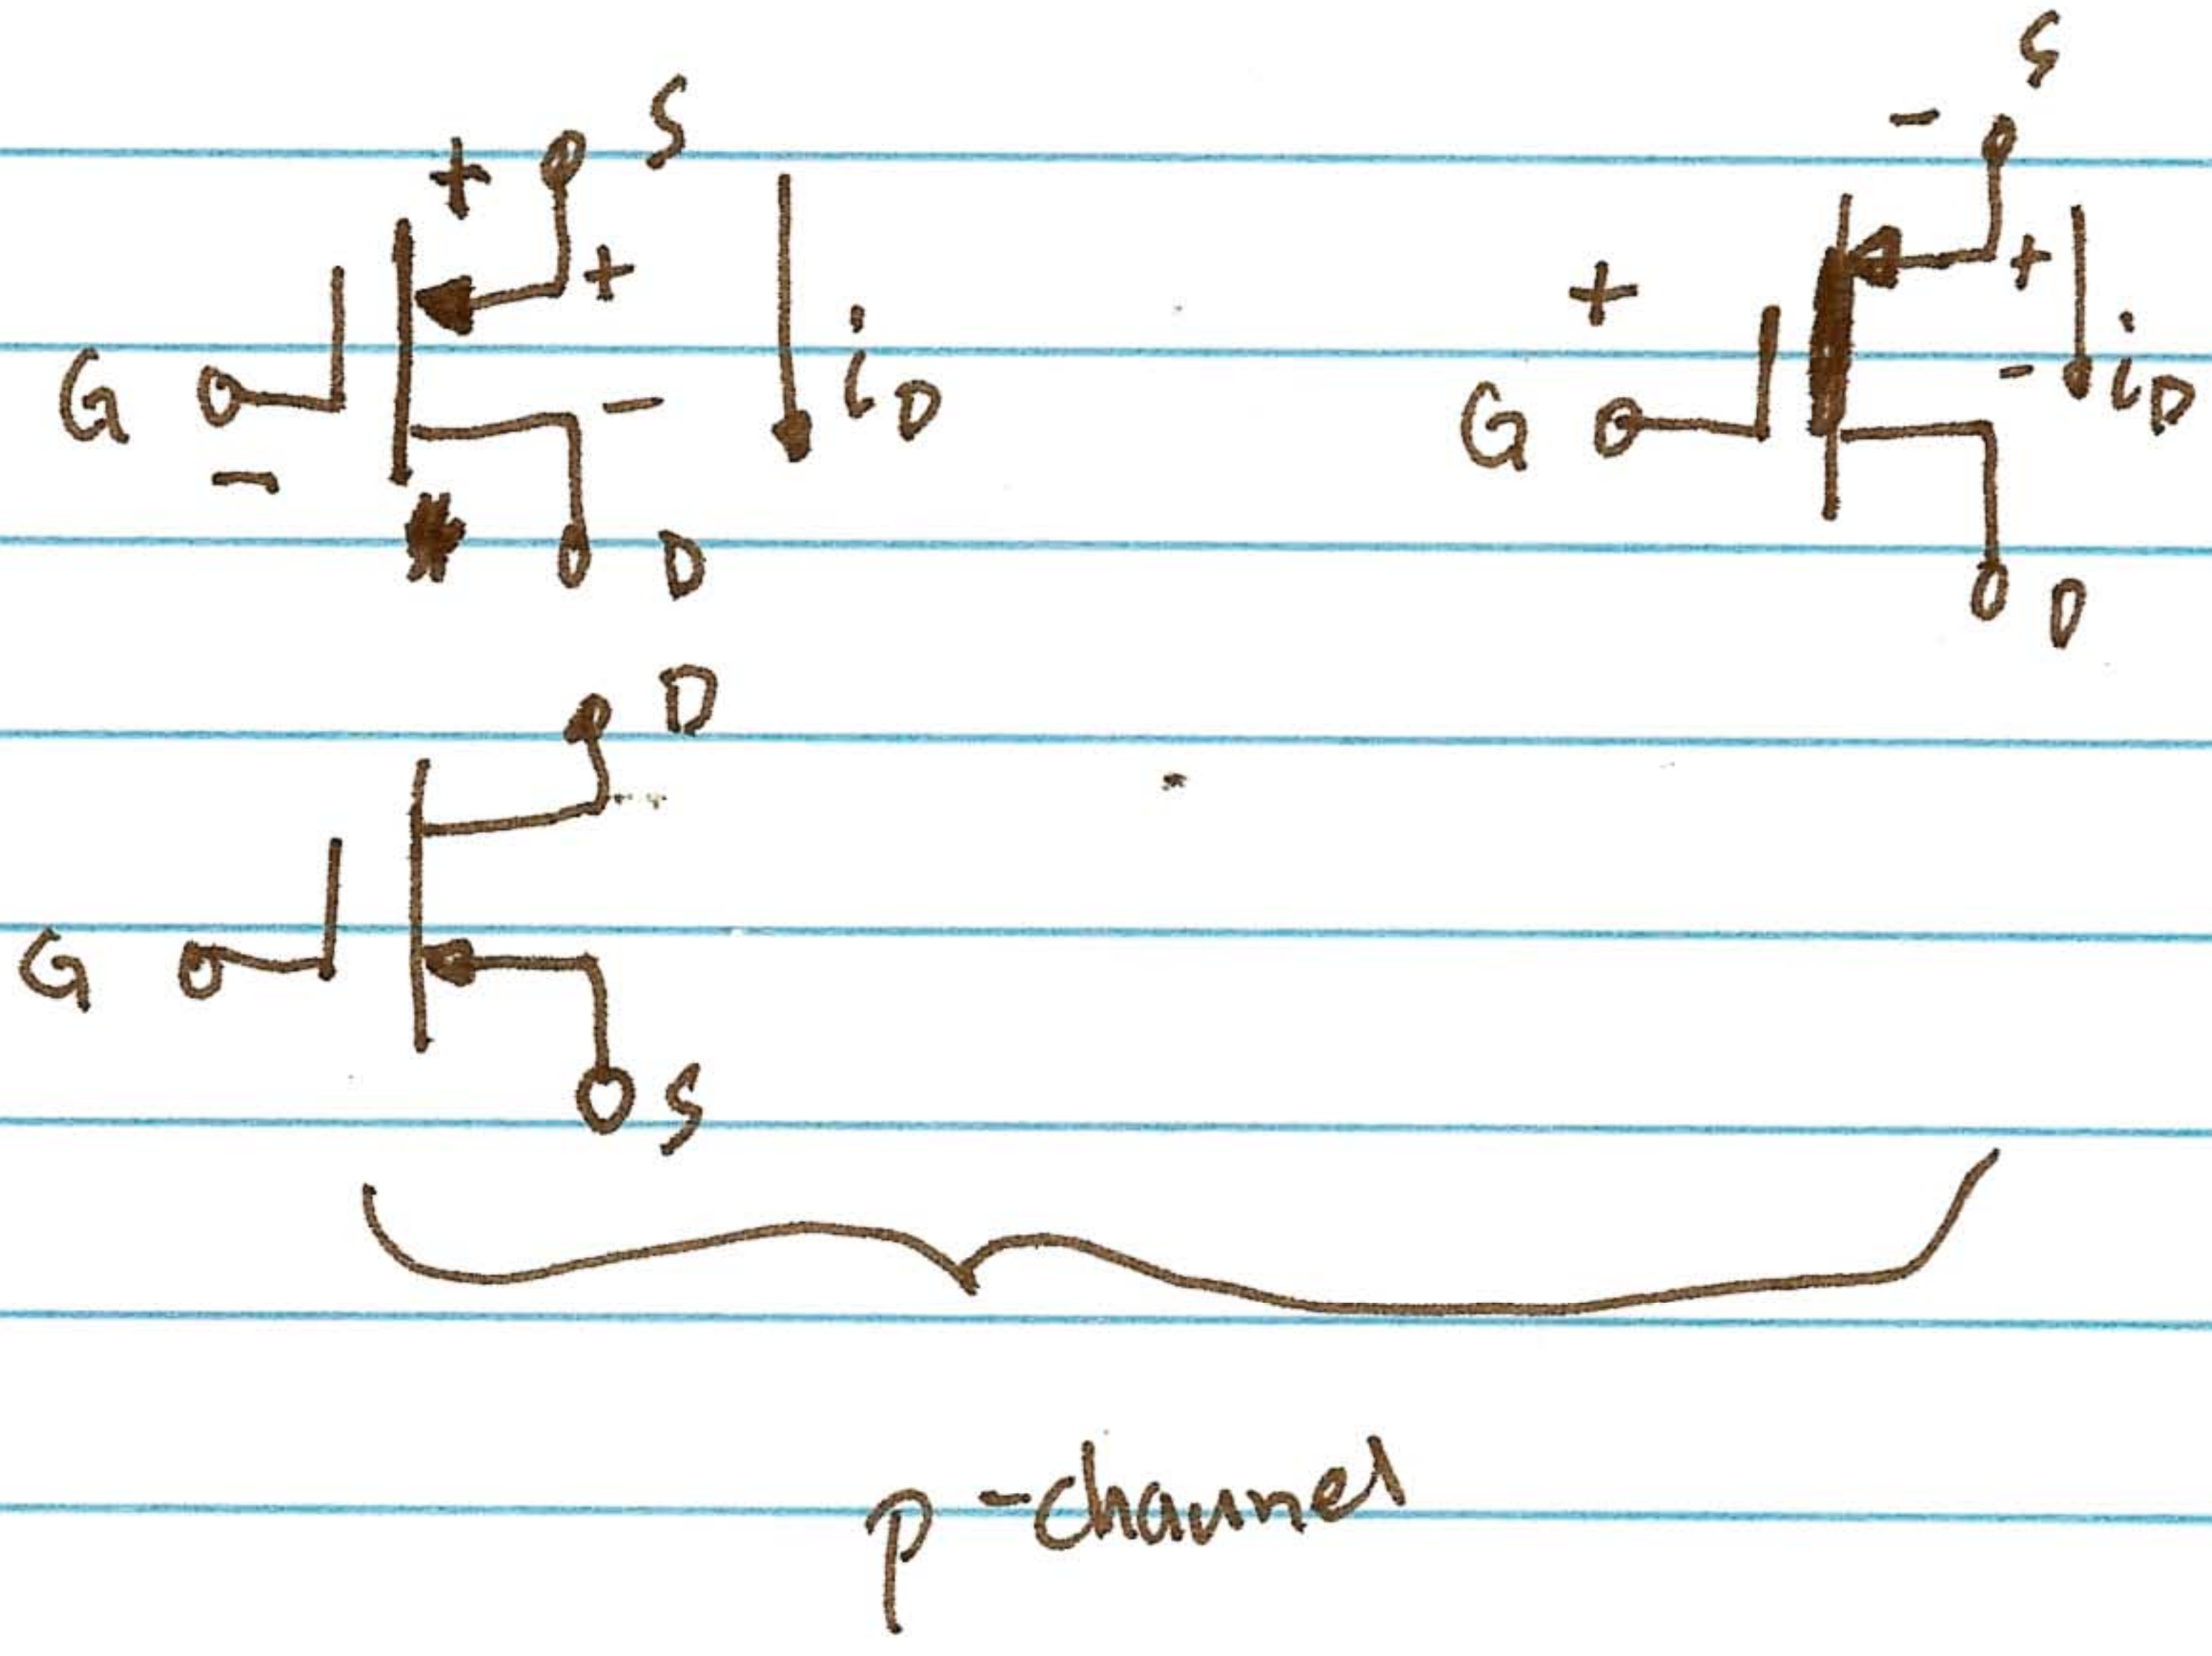 S
+
+
G
-
-
i_D
*
D
S
-
+
+
G
-
i_D
D
D
G
S
p-channel